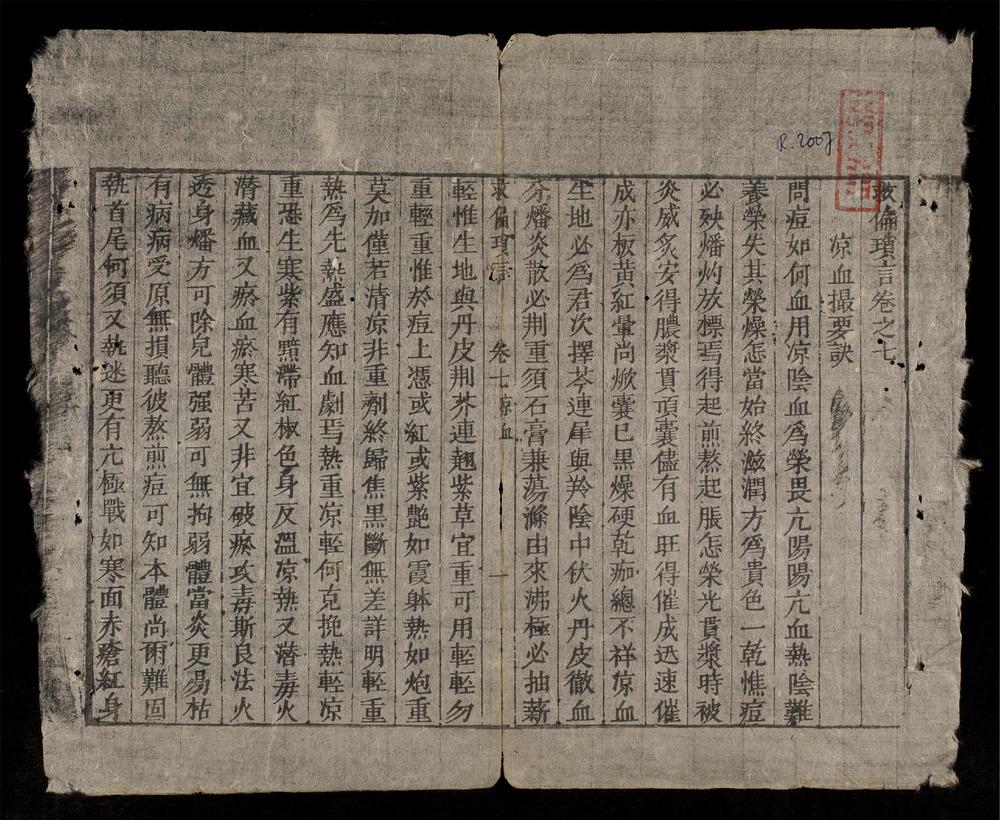 救偏瑣言卷之七
凉血撮要訣
問痘如何血用凉陰血爲榮畏亢陽陽亢血熱陰難
養榮失其榮燥怎當始終滋潤方爲貴色一乾憔痘
必殃燔灼放標焉得起煎熬起脹怎榮光貫漿時被
炎威炙安得膿漿貫頂囊儘有血旺得催成迅速催
成亦板黃紅暈尚焮囊已黑燥硬乾痂總不祥凉血
生地必爲君次擇芩連犀與羚陰中伏火丹皮徹血
分燔炎散必荆重須石膏兼蕩滌由來沸極必抽薪
救偏瑣言 卷七凉血 一
輕惟生地與丹皮荆芥連翹紫草宜重可用輕輕勿
重輕重惟於痘上憑或紅或紫艷如霞躰熱如炮重
莫加僅若清凉非重劑終歸焦黑斷無差詳明輕重
熱爲先熱盛應知血劇焉熱重凉輕何克挽熱輕凉
重恐生寒紫有黯滯紅椒色身反溫凉熱又潛毒火
潛藏血又瘀血瘀寒苦又非宜破瘀攻毒斯良法火
透身燔方可除兒體强弱可無拘弱體當炎更易枯
有病病受原無損聽彼熬煎痘可知本體尚爾難固
執首尾何須又執迷更有亢極戰如寒面赤瘡紅身
R.2007